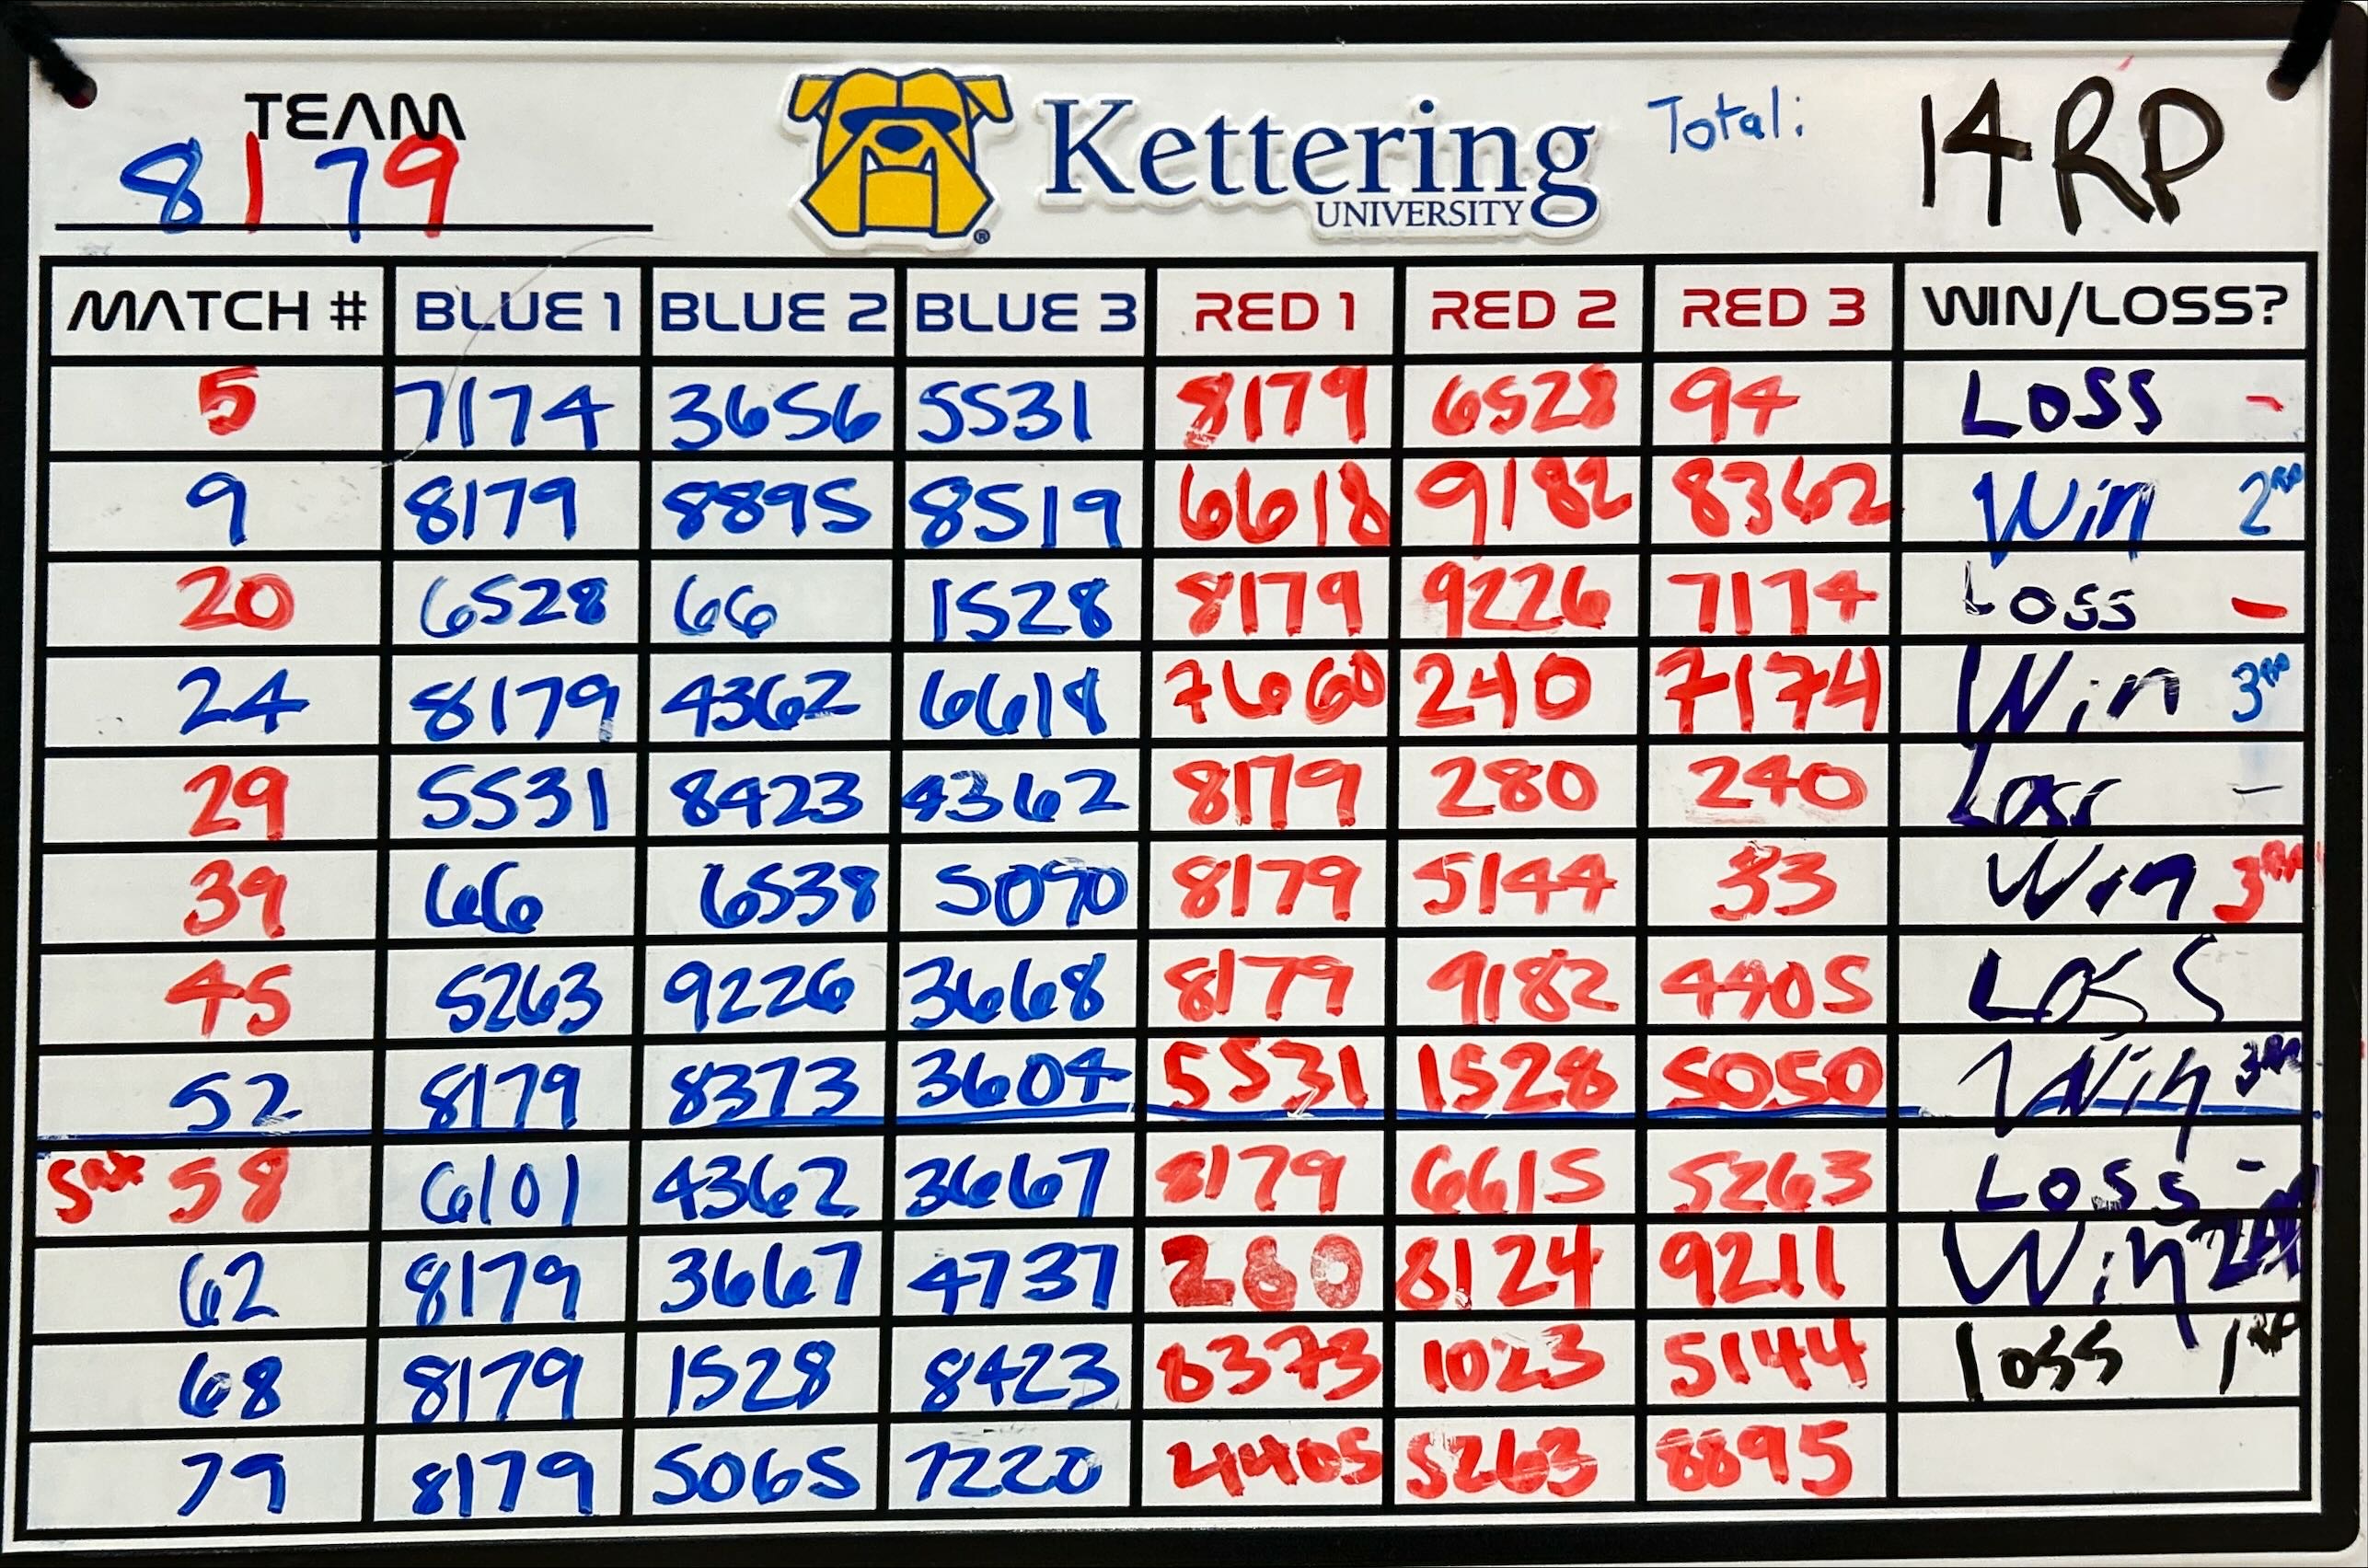 TEAM
8179
Kettering
UNIVERSITY
Total: 14 RP
MATCH # BLUE 1 BLUE 2 BLUE 3 RED 1 RED 2 RED 3 WIN/LOSS?
5 7174 3656 5531 8179 6528 94 LOSS -
9 8179 8895 8519 6618 9182 8362 Win 2RP
20 6528 66 1528 8179 9226 7174 Loss -
24 8179 4362 6618 7660 240 7174 Win 3RP
29 5531 8423 4362 8179 280 240 Loss -
39 66 6538 5090 8179 5144 33 Win 3RP
45 5263 9226 3668 8179 9182 4405 LOSS
52 8179 8373 3604 5531 1528 5050 Win 3RP
58 6101 4362 3667 8179 6615 5263 Loss -
62 8179 3667 4737 280 8124 9211 Win 2RP
68 8179 1528 8423 8373 1023 5144 loss 1RP
79 8179 5065 7220 4405 5263 8895